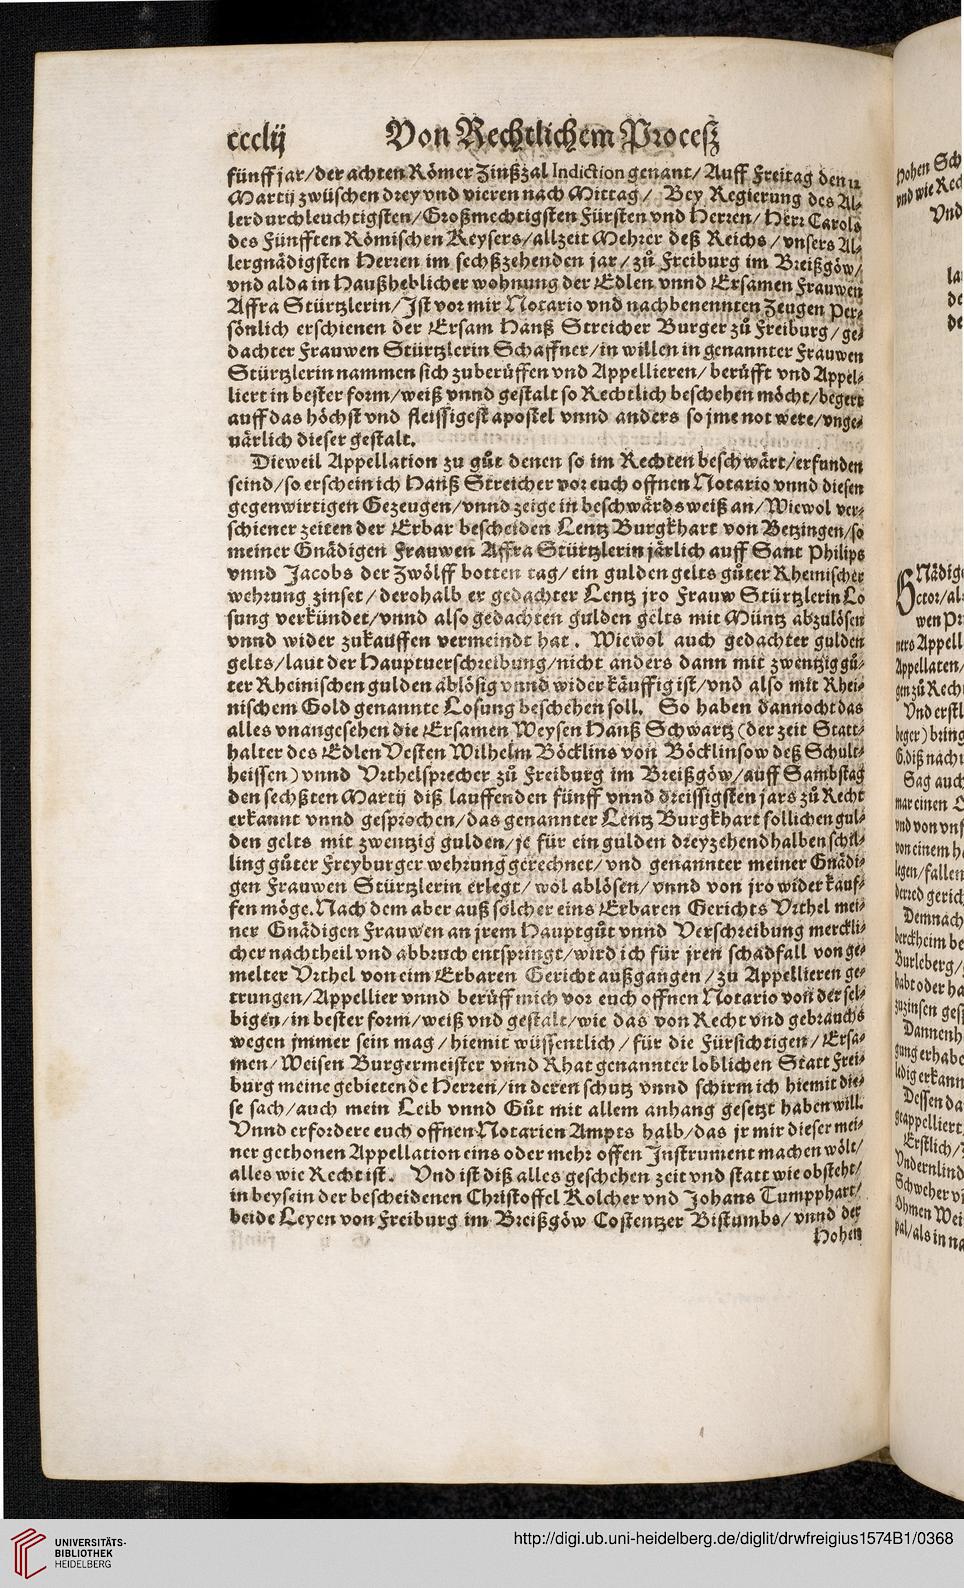 ccclij Von Rechtlichem Proceß
fünff jar/der achten Römer Zinßzal Indiction genant/ Auff Freitag den 12
Martij zwüschen drey vnd vieren nach Mittag/ Bey Regierung des Al-
lerdurchleuchtigsten/Großmechtigsten Fürsten vnd Herren/ Herr Carols
des Fünfften Römischen Keysers/allzeit Mehrer deß Reichs/vnsers Al-
lergnädigsten Herren im sechßzehenden jar/ zů Freiburg im Breißgöw/
vnd alda in Haußheblicher wohnung der Edlen vnnd Ersamen Frauwen
Affra Stürtzlerin/Ist vor mir Notario vnd nachbenennten Zeugen Per-
sönlich erschienen der Ersam Hanß Streicher Burger zů Freiburg/ge-
dachter Frauwen Stürtzlerin Schaffner/in willen in genannter Frauwen
Stürtzlerin nammen sich zuberüffen vnd Appellieren/ berüfft vnd Appel-
liert in bester form/weiß vnnd gestalt so Rechtlich beschehen möcht/begert
auff das höchst vnd fleissigest apostel vnnd anders so jme not were/vnge-
uärlich dieser gestalt.
Dieweil Appellation zu gůt denen so im Rechten beschwärt/erfunden
seind/so erschein ich Hanß Streicher vor euch offnen Notario vnnd diesen
gegenwirtigen Gezeugen/vnnd zeige in beschwärdsweiß an/Wiewol ver-
schiener zeiten der Erbar bescheiden Lentz Burgkhart von Betzingen/so
meiner Gnädigen Frauwen Affra Stürtzlerin järlich auff Sant Philips
vnnd Jacobs der Zwölff botten tag/ein gulden gelts gůter Rheinischer
wehrung zinset/derohalb er gedachter Lentz jro Frauw Stürtzlerin Lo
sung verkündet/vnnd also gedachten gulden gelts mit Müntz abzulösen
vnnd wider zukauffen vermeindt hat. Wiewol auch gedachter gulden
gelts/laut der Hauptuerschreibung/nicht anders dann mit zwentzig gů-
ter Rheinischen gulden ablösig vnnd wider käuffig ist/vnd also mit Rhei-
nischem Gold genannte Losung beschehen soll. So haben dannocht das
alles vnangesehen die Ersamen Weysen Hanß Schwartz (der zeit Statt-
halter des Edlen Vesten Wilhelm Böcklins von Böcklinsow deß Schult-
heissen) vnnd Vrthelsprecher zů Freiburg im Breißgöw/auff Sambstag
den sechßten Martij diß lauffenden fünff vnnd dreissigsten jars zů Recht
erkannt vnnd gesprochen/das genannter Lentz Burgkhart sollichen gul-
den gelts mit zwentzig gulden/je für ein gulden dreyzehendhalben schil-
ling gůter Freyburger wehrung gerechnet/vnd genannter meiner Gnädi-
gen Frauwen Stürtzlerin erlegt/wol ablösen/vnnd von jro wider kauf-
fen möge. Nach dem aber auß solcher eins Erbaren Gerichts Vrthel mei-
ner Gnädigen Frauwen an jrem Hauptgůt vnnd Verschreibung merckli-
cher nachtheil vnd abbruch entspringt/wird ich für jren schadfall von ge-
melter Vrthel von eim Erbaren Gericht außgangen/zu Appellieren ge-
trungen/Appellier vnnd berüff mich vor euch offnen Notario von der sel-
bigen/in bester form/weiß vnd gestalt/wie das von Recht vnd gebrauchs
wegen jmmer sein mag/hiemit wüssentlich/für die Fürsichtigen/Ersa-
men/Weisen Burgermeister vnnd Rhat genannter loblichen Statt Frei-
burg meine gebietende Herren/in deren schutz vnnd schirm ich hiemit die-
se sach/auch mein Leib vnnd Gůt mit allem anhang gesetzt haben will.
Vnnd erfordere euch offnen Notarien Ampts halb/das jr mir dieser mei-
ner gethonen Appellation eins oder mehr offen Instrument machen wölt/
alles wie Recht ist. Vnd ist diß alles geschehen zeit vnd statt wie obsteht/
in beysein der bescheidenen Christoffel Kolcher vnd Johans Tumpphart/
beide Leyen von Freiburg im Breißgöw Costentzer Bistumbs/vnnd der
Hohen
Hohen Sch
vnd wie Rec
Vnd
la
de
de
GNädige
ctor/al
wen Pr
ners Appell
Appellaten/
gen zů Rech
Vnd erstl
beger) bring
G. diß nach
Sag auch
mar einen
vnd von vns
von einem h
legen/fallen
dered gerich
Demnach
berckheim be
Burleberg/
habt oder ha
zuzinsen ges
Dannenh
gung erhabe
ledig erkann
Dessen da
geappelliert
Erstlich/
Vndernlind
Schweher v
Ohmen Wei
pal/als in na
UNIVERSITÄTS-
BIBLIOTHEK
HEIDELBERG
http://digi.ub.uni-heidelberg.de/diglit/drwfreigius1574B1/0368